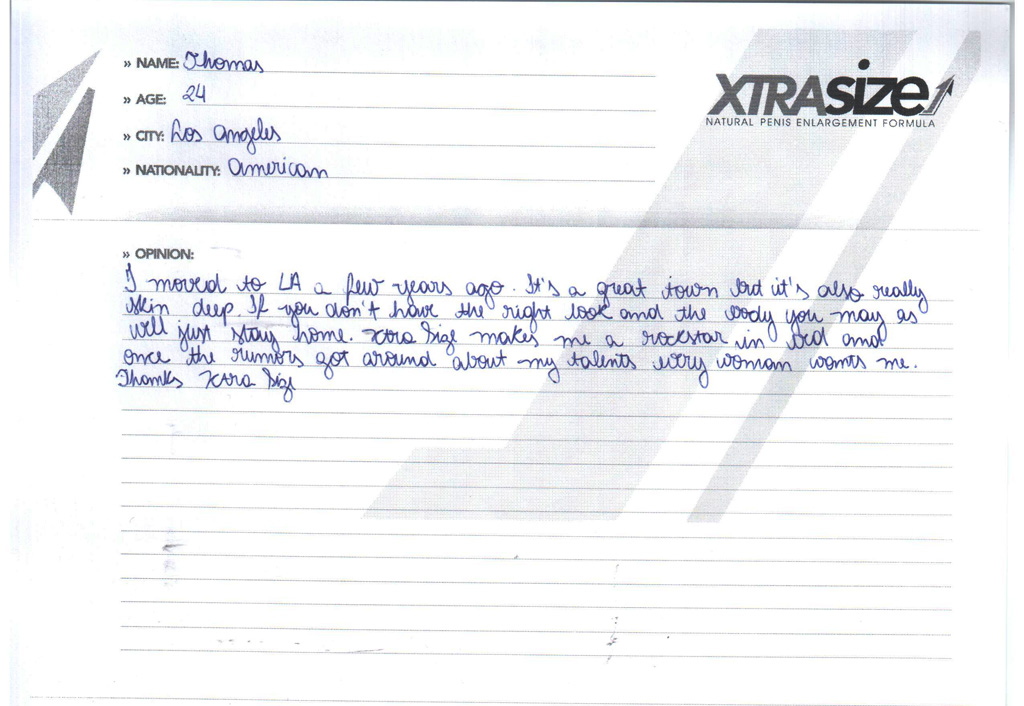 » NAME: Thomas
» AGE: 24
» CITY: Los Angeles
» NATIONALITY: American
XTRASIZE
NATURAL PENIS ENLARGEMENT FORMULA
» OPINION:
I moved to LA a few years ago. It's a great town but it's also really
skin deep. If you don't have the right look and the body you may as
well just stay home. Xtra Size makes me a rockstar in bed and
once the rumors got around about my talents every woman wants me.
Thanks Xtra Size